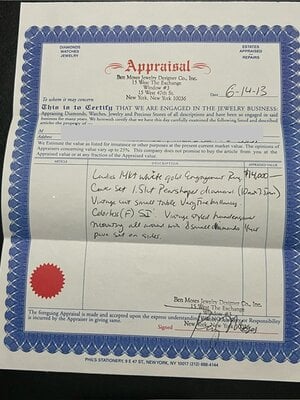 DIAMONDS
WATCHES
JEWELRY
ESTATES
APPRAISED
REPAIRS
Appraisal
Ben Moses Jewelry Designer Co., Inc.
15 West The Exchange
Window #3
15 West 47th St.
New York, New York 10036
Date 6-14-13
To whom it may concern:
This is to Certify THAT WE ARE ENGAGED IN THE JEWELRY BUSINESS:
Appraising Diamonds, Watches, Jewelry and Precious Stones of all descriptions and have been so engaged in said
business for many years. We herewith certify that we have this day carefully examined the following listed and described
articles the property of
We Estimate the value as listed for insurance or other purposes at the present current market value. The opinions of
Appraisers concerning value vary up to 25%. This company does not promise to buy the article from you at the
Appraised value or at any fraction of the Appraisal value.
DESCRIPTION APPRAISED VALUE
Ladies 14kt white gold Engagement Ring $14,000
set 1.51ct Pearshape diamond
Vintage cut small table Very fine brilliancy
Colorless (F) SI Vintage style
mounting all around with small diamonds
set on sides.
Ben Moses Jewelry Designer Co., Inc.
15 West The Exchange
The foregoing Appraisal is made and accepted upon the express understanding
is incurred by the Appraiser in giving same.
Signed
PHIL'S STATIONERY, 9 E 47 ST., NEW YORK, NY 10017 (212) 688-4144